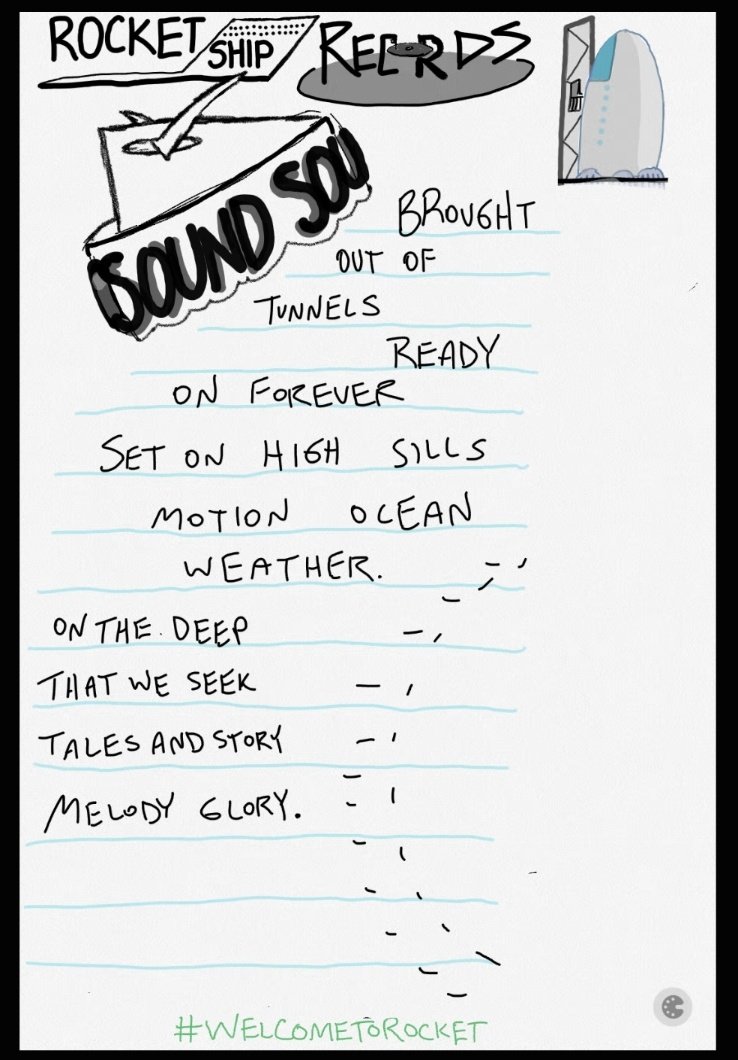 ROCKET SHIP RECORDS
SOUND SOU
BROUGHT
OUT OF
TUNNELS
READY
ON FOREVER
SET ON HIGH SILLS
MOTION OCEAN
WEATHER.
ON THE DEEP
THAT WE SEEK
TALES AND STORY
MELODY GLORY.
#WELCOMETOROCKET